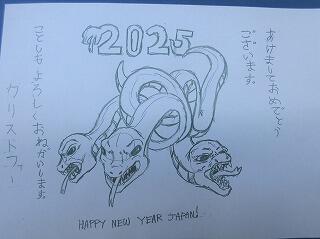 2025
あけましておめでとう
ございます。
ことしもよろしくおねがいします。
クリストファー
HAPPY NEW YEAR JAPAN!